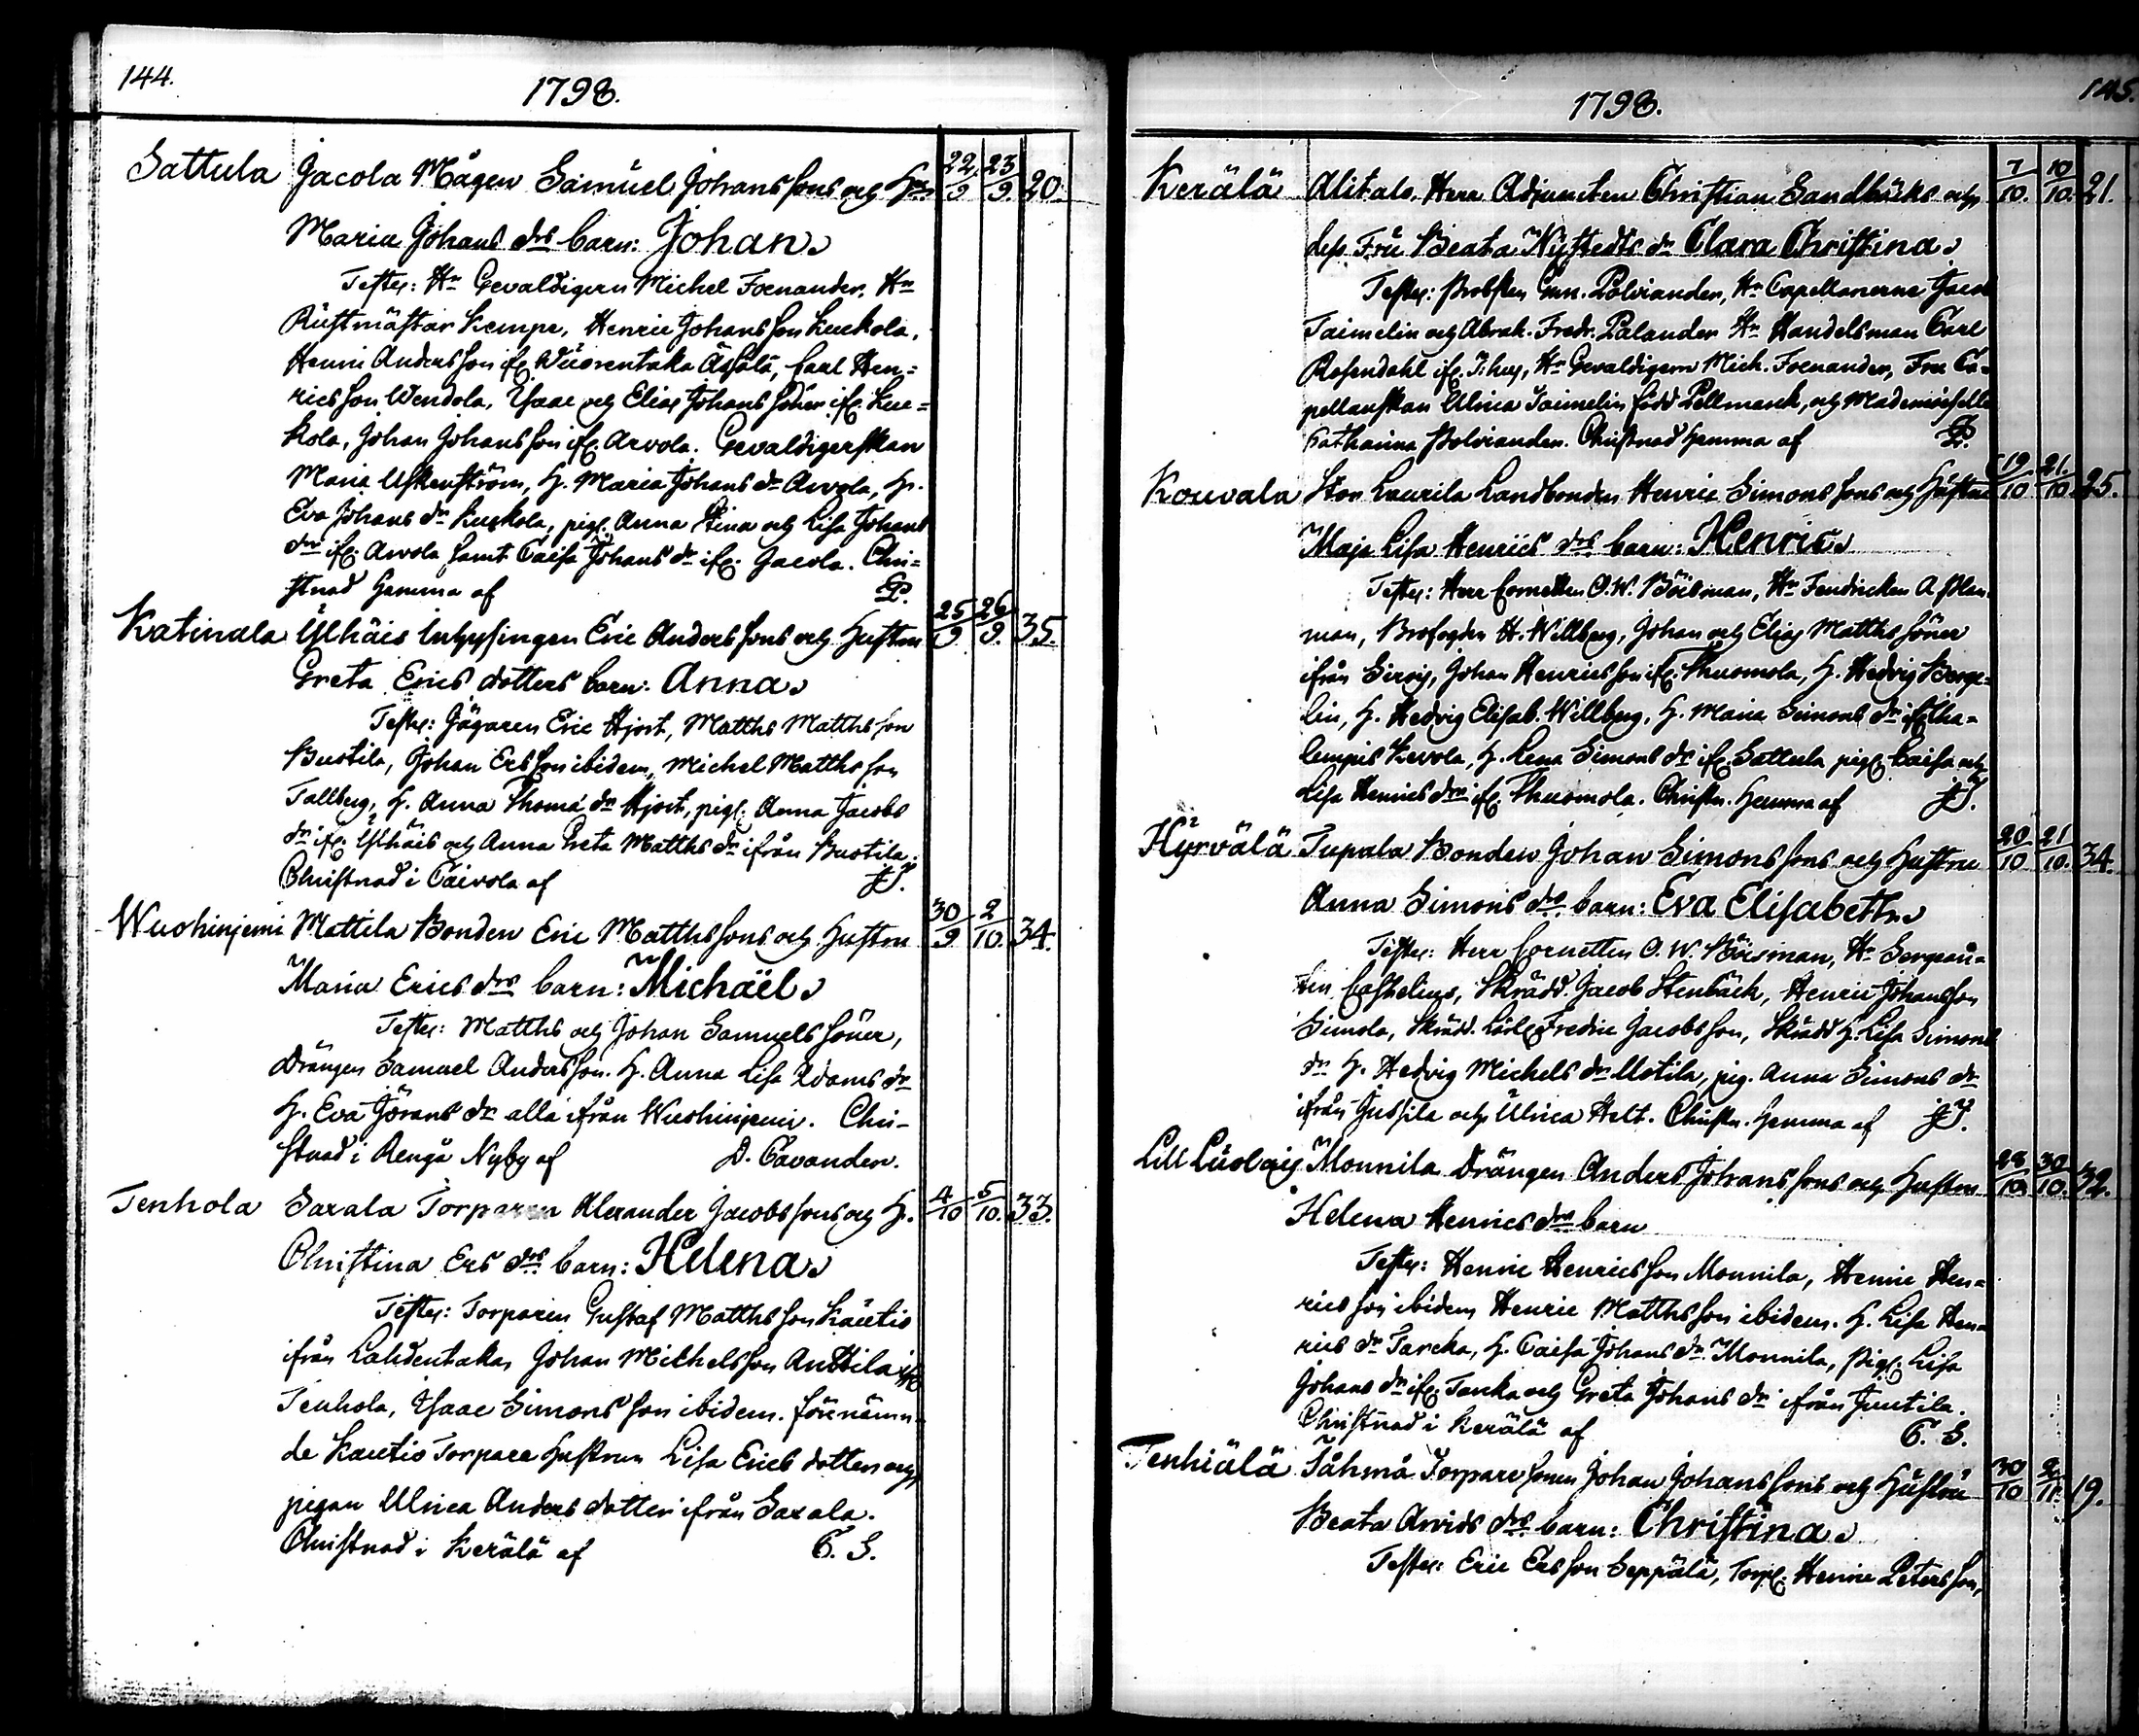 144.
1798.
Sattula Jacola Mågen Samuel Johanssons och Hu 22/9 23/9. 20.
Maria Johans drs barn: Johan.
Testes: Hr Gevaldigern Michel Foenander, Hr
Rustmästar Kempe, Henric Johansson Kuckola,
Henric Andersson ifr. Wuorentaka Ässälä, Carl Hen=
ricsson Wendola, Isaac och Elias Johanssöner ifr. Kuc=
kola, Johan Johansson ifr. Arvola. Gevaldigerskan
Maria Uskenström, H. Maria Johans dr Arvola, H.
Eva Johans dr Kuckola, pig. Anna Stina och Lisa Johans
drr ifr. Arvola samt Caisa Johans dr ifr. Jacola. Chri=
stnad hemma af GP.
Katinala Ylhäis Inhysingen Eric Anderssons och Hustrus 25/9 26/9. 35.
Greta Erics dotters barn: Anna.
Testes: Jägaren Eric Hjort, Matths Matthsson
Bustila, Johan Ersson ibidem, Michel Matthsson
Tallberg, H. Anna Thomæ dr Hjort, pig. Anna Jacobs
dr ifr. Ylhäis och Anna Greta Matths dr ifrån Bustila.
Christnad i Caivola af JT.
Wuohinjemi Mattila Bonden Eric Matthssons och Hustrus 30/9 2/10. 34.
Maria Erics drs barn: Michaël.
Testes: Matths och Johan Samuelssöner,
Drängen Samuel Andersson. H. Anna Lisa Adams dr
H. Eva Görans dr alla ifrån Wuohinjemi. Chri-
stnad i Rengå Nyby af D. Cavander.
Tenhola Saxala Torparen Alexander Jacobssons och H. 4/10 5/10. 33.
Christina Ers drs barn: Helena.
Testes: Torparen Gustaf Matthsson Kautio
ifrån Lahdentaka, Johan Michelsson Anttila ifr
Tenhola, Isaac Simonsson ibidem. förenämn=
de Kautio Torpare hustrun Lisa Erics dotter och
pigan Ulrica Anders dotter ifrån Saxala.
Christnad i Kerälä af C. S.
1798.
145.
Kerälä Alitalo, Herr Adjuncten Christian Sandbäcks och 7/10. 10/10. 21.
dess Fru Beata Nystedts dr Clara Christina.
Testes: Probsten Gm. Polviander, Hr Capellanerne Jacob
Taimelin och Abrah. Fredr. Palander Hr Handelsman Carl
Rosendahl ifr. T:hus, Hr Gevaldigern Mich. Foenander, Fru Ca=
pellanskan Ulrica Taimelin född Pellmarck, och Mademoiselle
Catharina Polviander. Christnad hemma af GP.
Kouvala Stor Laurila Landbonden Henric Simonssons och Hustrus 19/10 21/10. 25.
Maja Lisa Henrics drs barn: Henric.
Testes: Herr Cornetten O. W. Böisman, Hr Fendricken A. Stan
man, Brofogden H. Willberg, Johan och Elias Matthssöner
ifrån Siroij, Johan Henricsson ifr. Thuomola, H. Hedvig Berge=
lin, H. Hedvig Elisab. Willberg, H. Maria Simons dr ifr. Iha=
lempis Kevola, H. Lena Simons dr ifr. Sattula pig. Caisa och
Lisa Henrics drr ifr. Thuomola. Christn. hemma af JT.
Hyrvälä Tupala Bonden Johan Simonssons och Hustrus 20/10 21/10. 34.
Anna Simons drs barn: Eva Elisabeth.
Testes: Herr Cornetten O. W. Böisman, Hr Sergean=
ten Costhelius, Skrädd. Jacob Stenbäck, Henric Johansson
Simola, Skrädd. Lärl. Fredric Jacobsson, Skrädd H. Lisa Simons
dr H. Hedvig Michels dr Uotila, pig. Anna Simons dr
ifrån Jussila och Ulrica Helt. Christn. hemma af JT.
Lill Luolaja Monnila Drängen Anders Johanssons och Hustrus 28/10 30/10. 32.
Helena Henrics drs barn
Testes: Henric Henricsson Monnila, Henric Hen=
ricsson ibidem, Henric Matthsson ibidem. H. Lisa Hen=
rics dr Tarcka, H. Caisa Johans dr Monnila, Pig. Lisa
Johans dr ifr. Tarcka och Greta Johans dr ifrån Juutila.
Christnad i Kerälä af C. S.
Tenhiälä Tåhmå Torpare sonen Johan Johanssons och Hustrus 30/10 2/11. 19.
Beata Arvids drs barn: Christina.
Testes: Eric Ersson Seppälä, Torp. Henric Petersson,